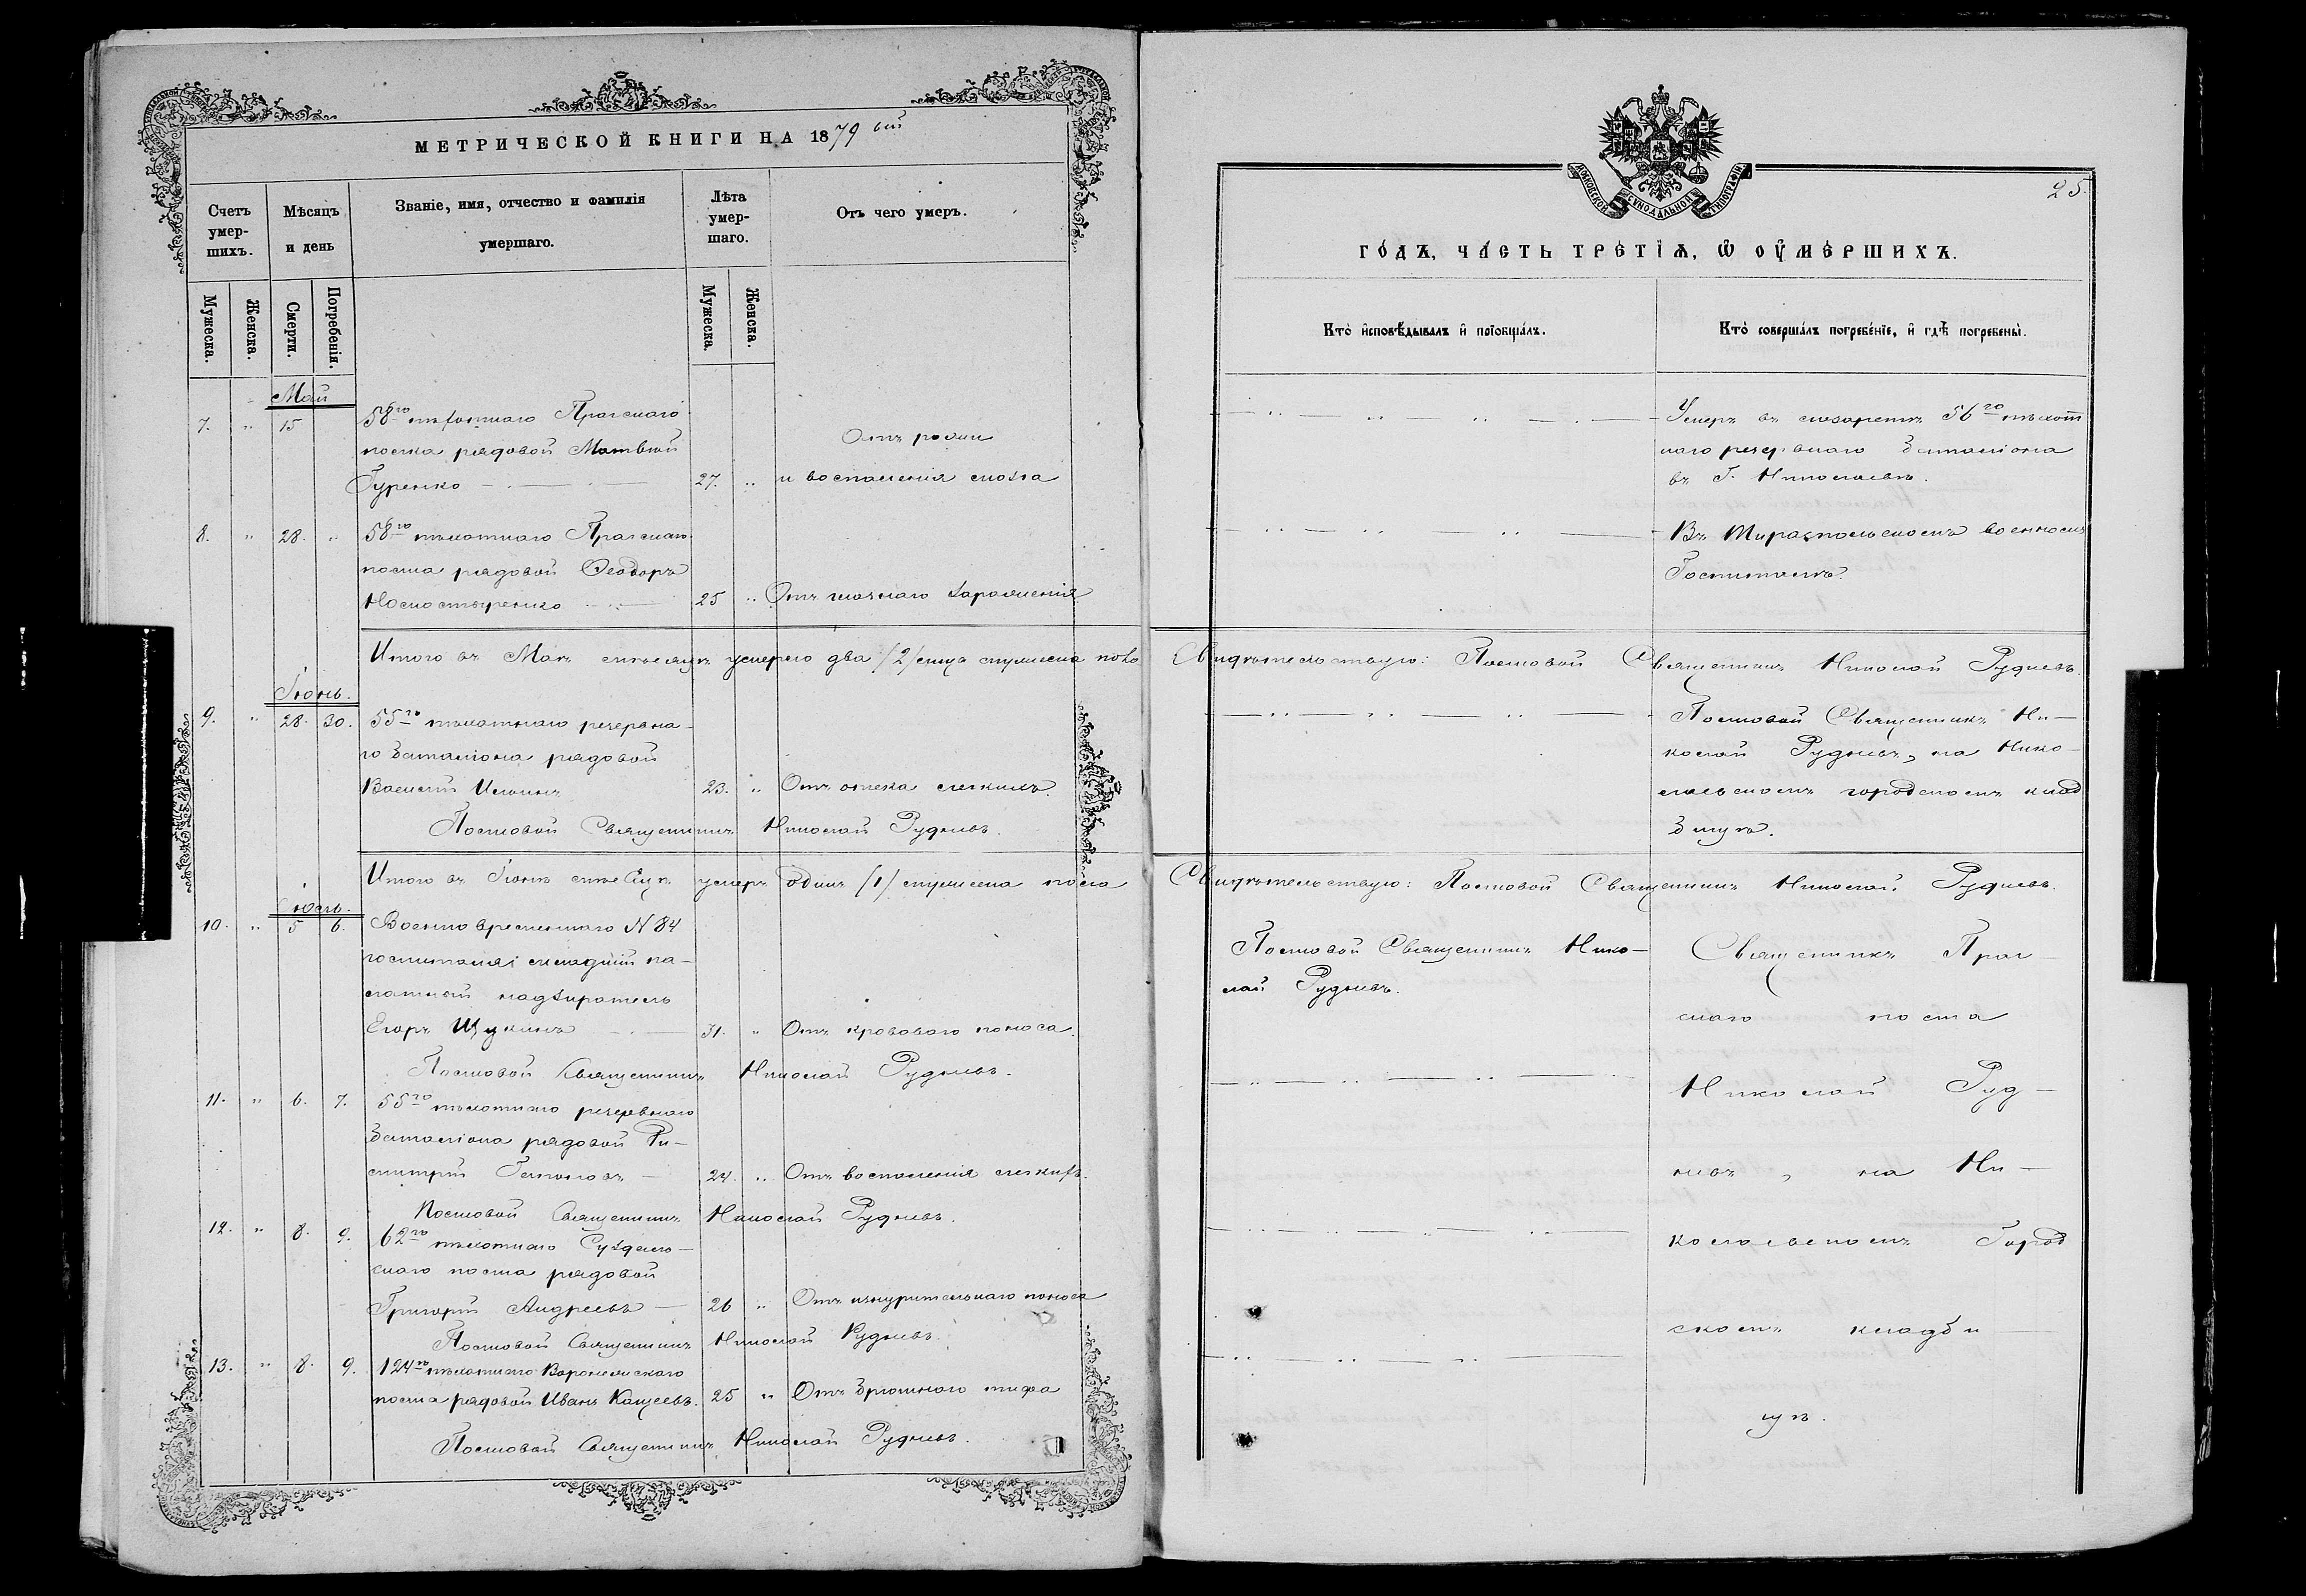 МЕТРИЧЕСКОЙ КНИГИ НА 1879 ый
Счетъ умер-шихъ.
Мѣсяцъ и день
Званіе, имя, отчество и фамилія умершаго.
Лѣта умер-шаго.
Отъ чего умеръ.
Мужеска.
Женска.
Смерти.
Погребенія.
Мужеска.
Женска.
Май
7. " 15
58го пѣхотнаго Пражскаго
полка рядовой Матвѣй
Гуренко 27. "
и воспаленія мозга
8. " 28. "
58го пѣхотнаго Пражскаго
полка рядовой Ѳеодоръ
25 "
Итого въ Маѣ мѣсяцѣ умерло два /2/ лица мужеска пола
Іюнь.
9. " 28. 30.
55го пѣхотнаго резервна-
го баталіона рядовой
Василій Ильинъ 23. " Отъ отека легкихъ.
Полковой Священникъ Николай Рудневъ.
Итого въ Іюнѣ мѣсяцѣ умеръ одинъ /1/ мужеска пола
Іюль.
10. " 5 6.
Военно временнаго N 84
госпиталя младшій па-
латный надзиратель
Егоръ Щукинъ 31. " Отъ кроваваго поноса.
Полковой Священникъ Николай Рудневъ.
11. " 6. 7.
55го пѣхотнаго резервнаго
баталіона рядовой Ди-
митрій 24. " Отъ воспаленія легкихъ.
Полковой Священникъ Николай Рудневъ.
12. " 8. 9.
62го пѣхотнаго Суздаль-
скаго полка рядовой
Григорій Андреевъ 26 " Отъ изнурительнаго поноса
Полковой Священникъ Николай Рудневъ.
13. " 8. 9.
124го пѣхотнаго Воронежскаго
полка рядовой Иванъ Кащеевъ. 25 " Отъ брюшнаго тифа
Полковой Священникъ Николай Рудневъ.
МОСКОВСКОЙ СѴНОДАЛЬНОЙ ТИПОГРАФІИ
25.
ГО́ДЪ, ЧА́СТЬ ТРЕ́ТІѦ, Ѡ҆ ОУ҆МЕ́РШИХЪ.
Кто̀ и҆сповѣ́дывалъ и҆ прїѻбща́лъ.
Кто̀ соверша́лъ погребе́нїе, и҆ гдѣ̀ погребены̀.
Умеръ въ лазаретѣ 56го пѣхот
наго резервнаго баталіона
въ Г. Николаевѣ.
Въ Тираспольскомъ военномъ
Госпиталѣ.
Свидѣтельствую: Полковой Священникъ Николай Рудневъ.
Полковой Священникъ Ни-
колай Рудневъ, на Нико-
лаевскомъ городскомъ клад
бищѣ.
Свидѣтельствую: Полковой Священникъ Николай Рудневъ.
Полковой Священникъ Нико-
лай Рудневъ.
Священникъ Праж-
скаго полка
Николай Руд-
невъ, на Ни-
колаевскомъ Город
скомъ кладби-
щѣ.